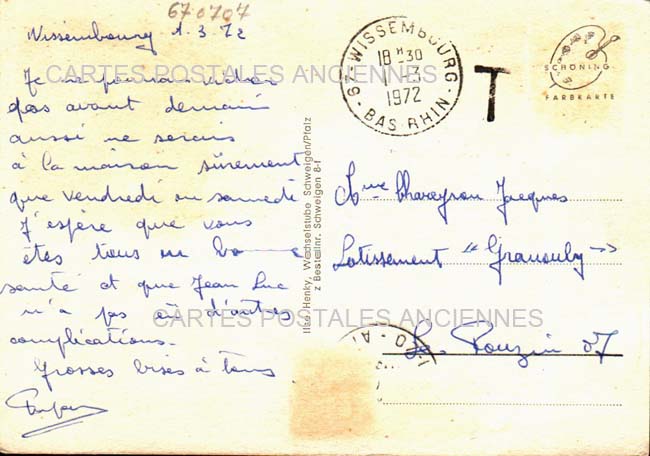 670707
Wissembourg 1.3.72
Je ne pourrai
pas avant demain
aussi ne serais
à la maison sûrement
que vendredi ou samedi
J'espère que vous
êtes tous en bonne
santé et que Jean Luc
n'a pas eu d'autres
complications.
Grosses bises à tous
CARTES POSTALES ANCIENNES
CARTES POSTALES ANCIENNES
Henky, Wechselstube Schweigen/Pfalz
z Bestellnr. Schweigen 8-f
67 WISSEMBOURG
18 H 30
1 - 3
1972
BAS RHIN
T
SCHÖNING
FARBKARTE
Jacques
Lotissement "
Le Pouzin 07